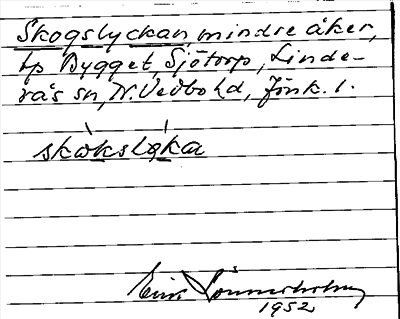 Skogslyckan mindre åker,
tp Bygget, Sjötorp, Linde-
rås sn, N. Vedbo hd, Jönk. l.
skωkslωka
1952